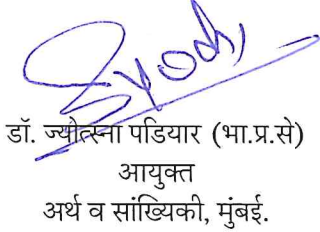 डॉ. ज्योत्स्ना पडियार (भा.प्र.से)
आयुक्त
अर्थ व सांख्यिकी, मुंबई.